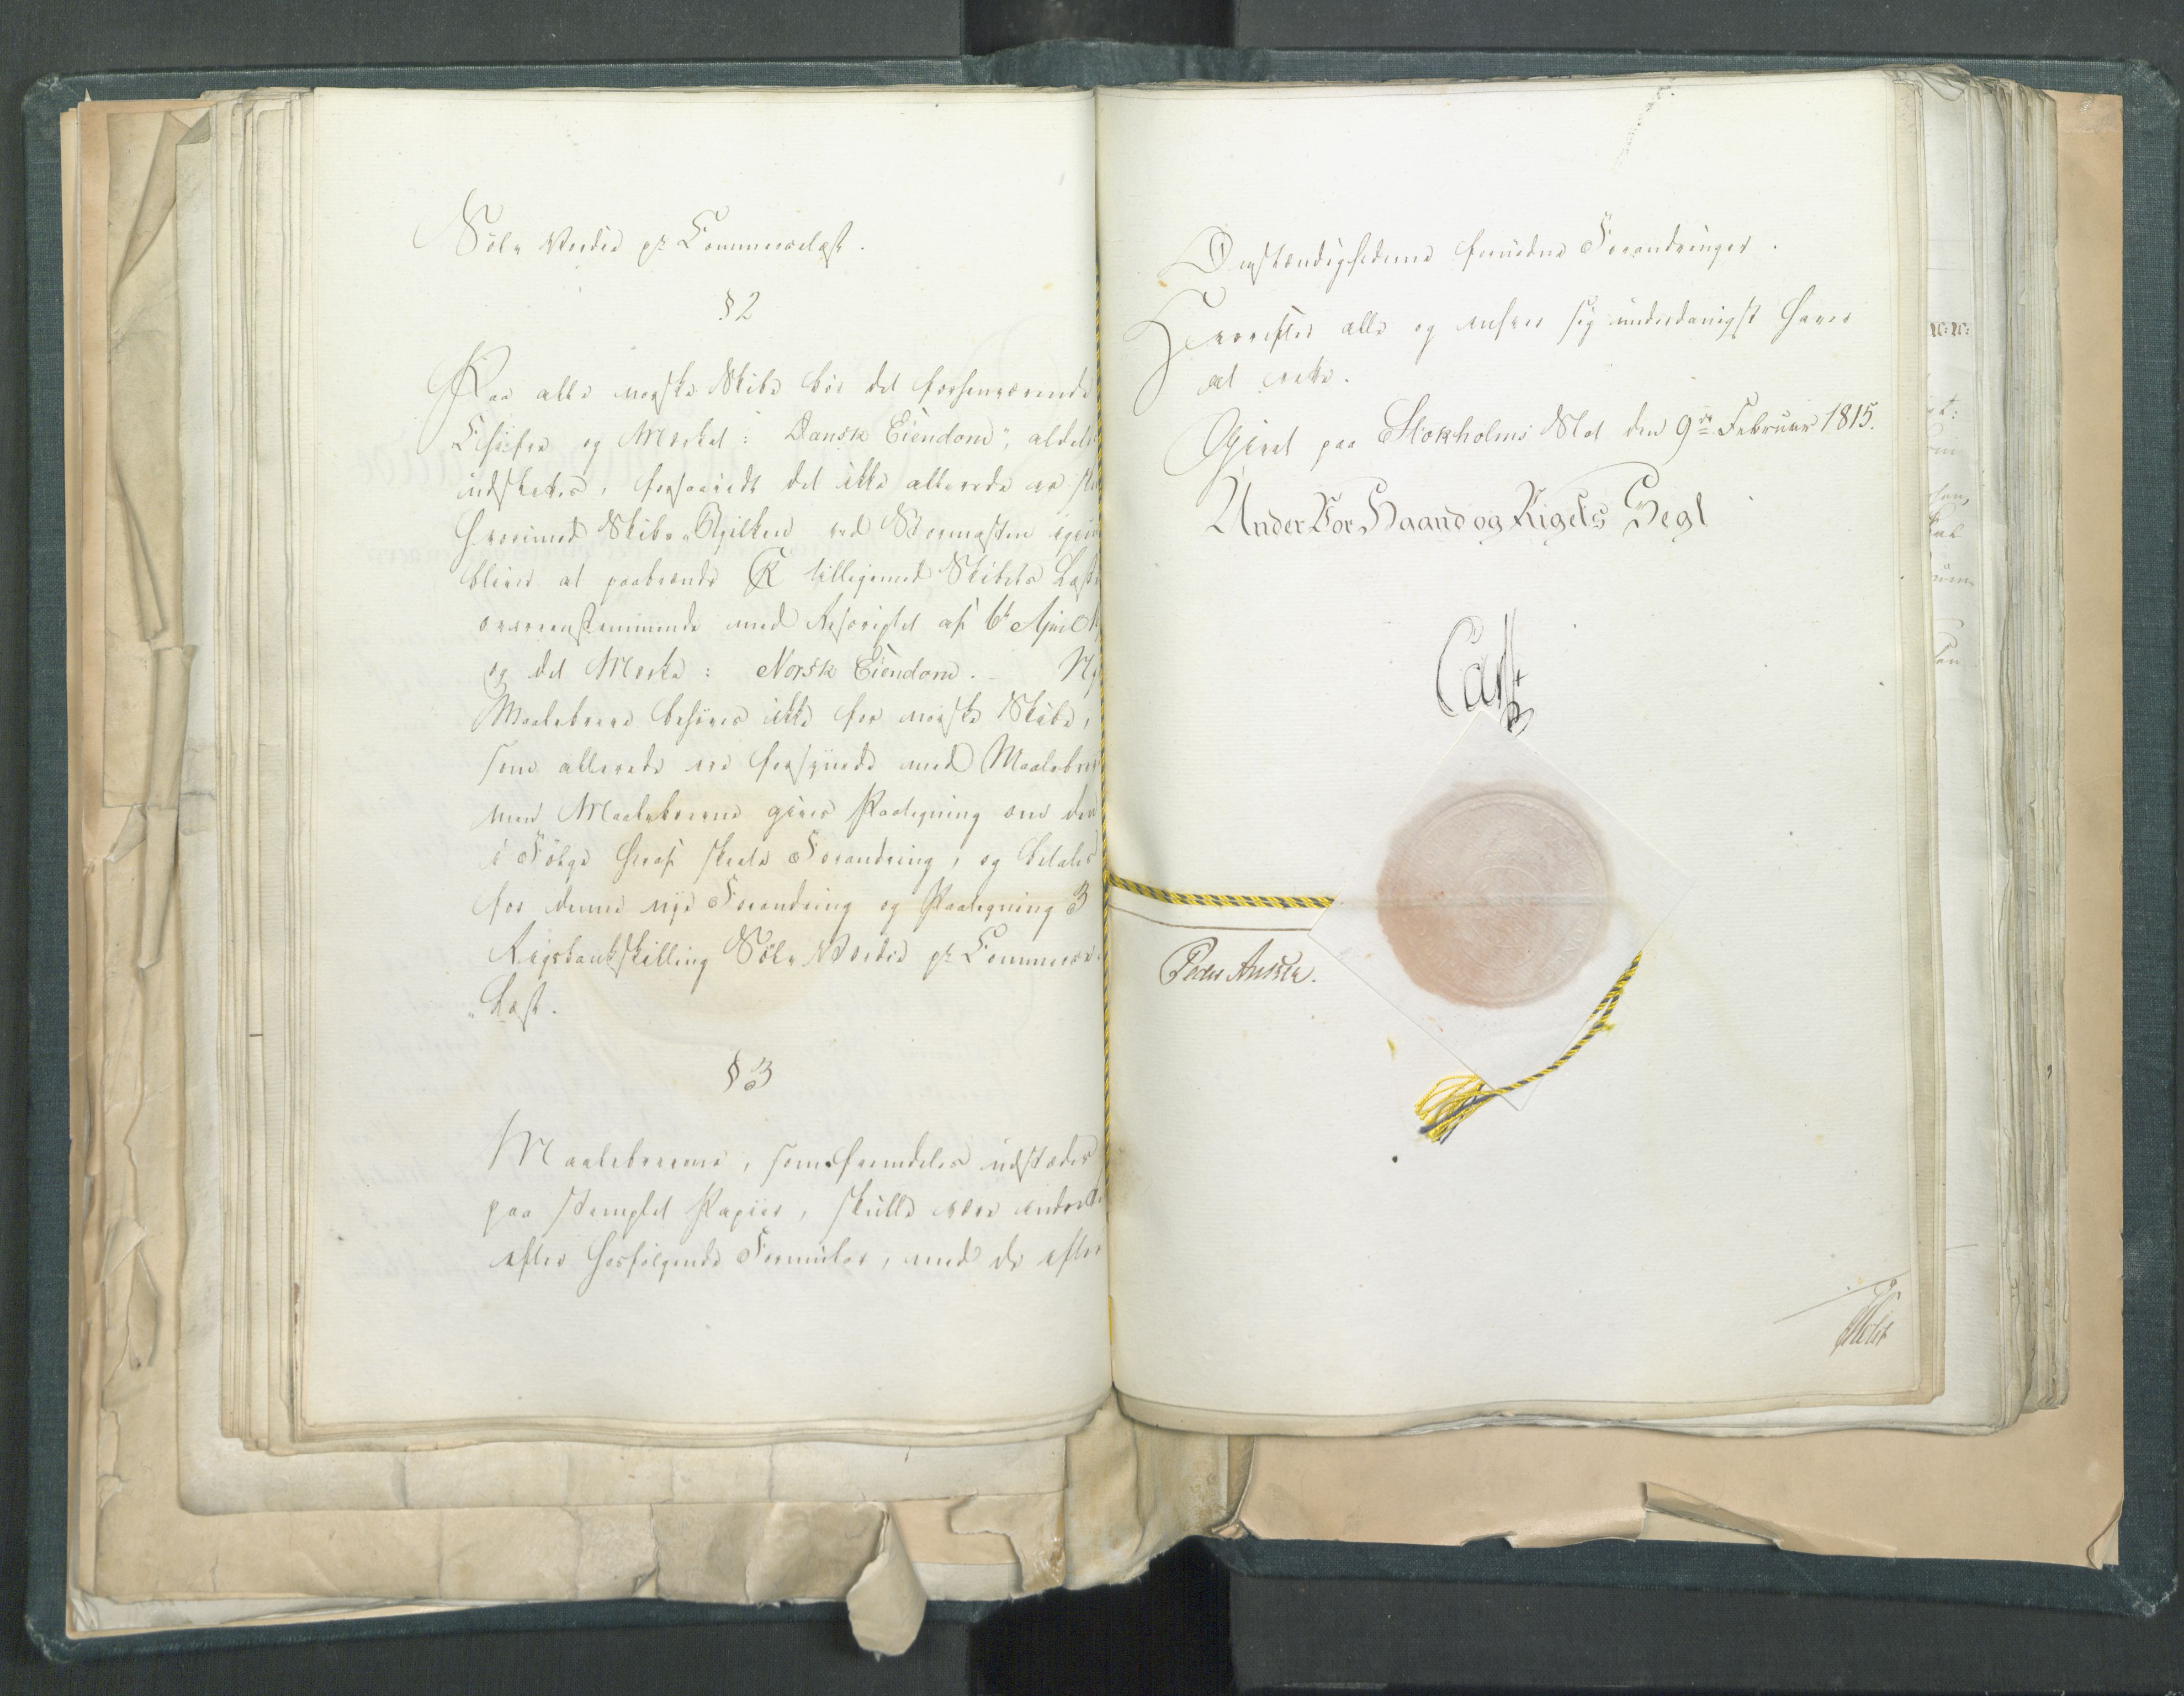 Sölv Værdie pr Commercelæst.
§ 2
Paa alle norske Skibe bör det forhenværende
Chiffre og Mærket: Dansk Eiendom", aldeles
udslettes, forsaavidt det ikke allerede er
hvorimod Skibs-Bjelken ved Stormasten igien
bliver at paabrænde tilligemed Skibets Læste
overeenstemmende med Rescriptet af 6te April
og det Mærke: Norsk Eiendom. - Ny
Maalebreve behöves ikke for norske Skibe,
som allerede ere forsynede med Maalebrev
men Maalebrevene gives Paategning om den
i Fölge heraf skeete Forandring, og betales
for denne nye Forandring og Paategning 3
Rigsbankskilling Sölv Værdie pr Commerce-
"Læst.
§ 3
Maalebrevene, som fremdeles udstædes
paa stemplet Papiir, skulle være indrettede
efter hosfölgende Formular, med de efter
Omstændighederne fornödne Forandringer.
Hvorefter alle og enhver sig underdanigst haver
at rette.
Givet paa Stokholms Slot den 9de Februar 1815.
Under Vor Haand og Rigets Segl
Carl
Peder Anker.
Holst